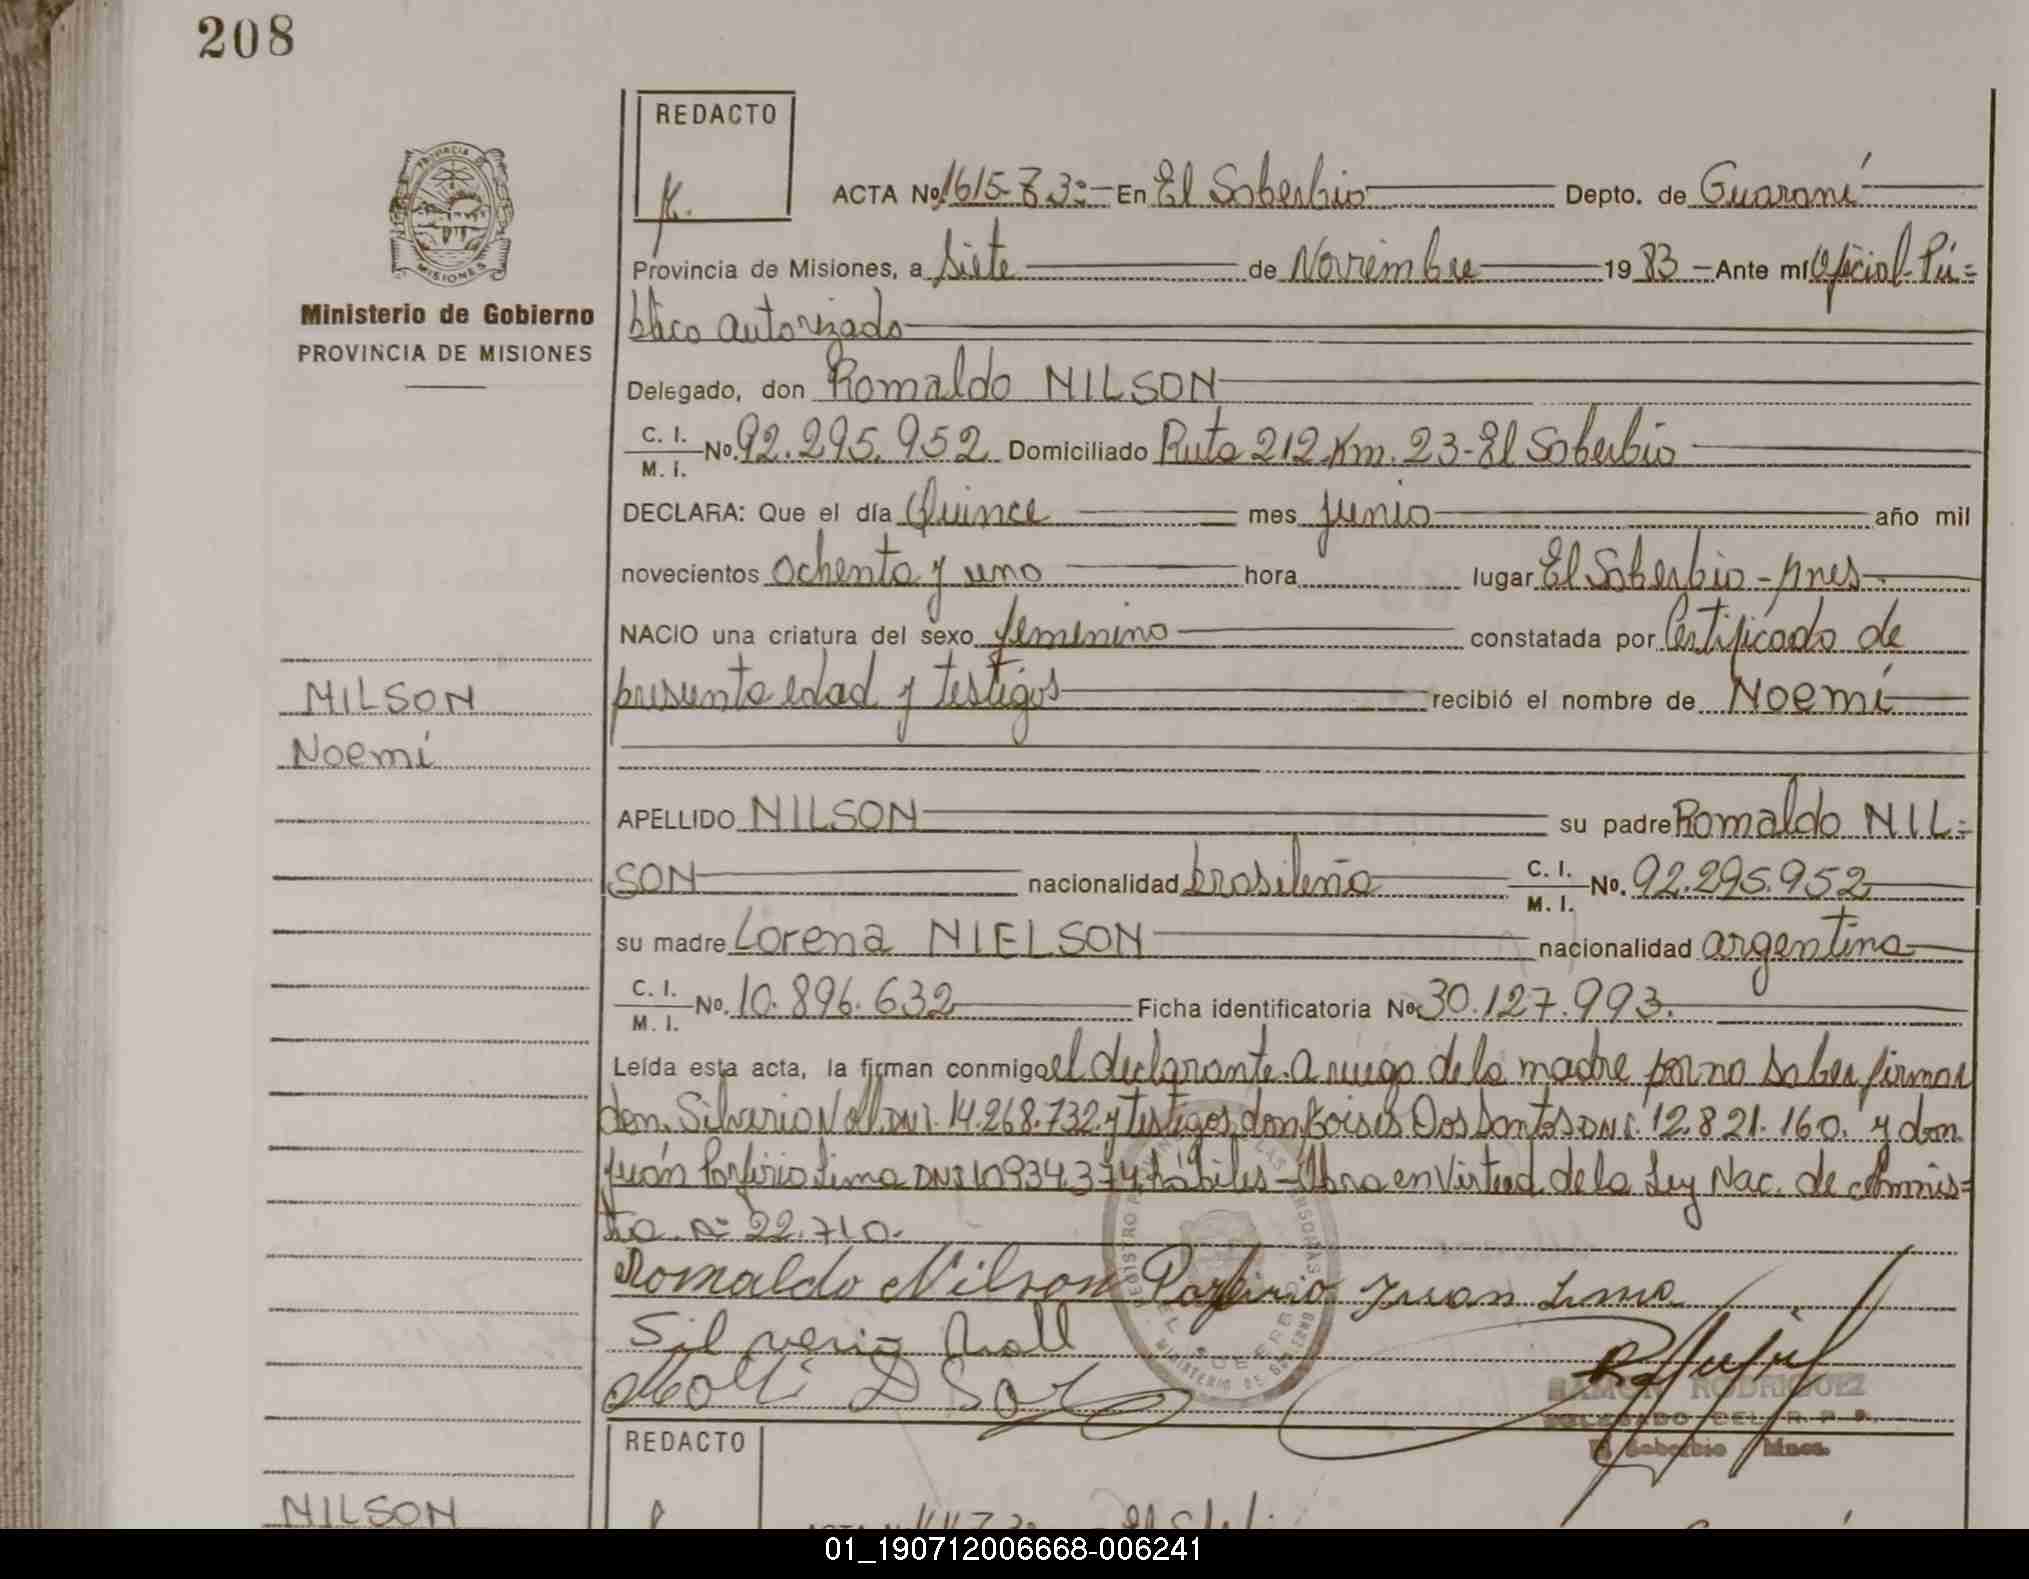 208
REDACTO
ACTA No 1615-73:- En El Soberbio Depto. de Guaraní
Provincia de Misiones, a Siete de Noviembre 19 83 - Ante mí Oficial-Pú=
blico autorizado
Ministerio de Gobierno
PROVINCIA DE MISIONES
Delegado, don Romaldo NILSON
C. I. M. I. No. 92.295.952 Domiciliado Ruta 212 Km. 23-El Soberbio
DECLARA: Que el día Quince mes junio año mil
novecientos ochenta y uno hora lugar El Soberbio-mnes-
NACIO una criatura del sexo femenino constatada por Certificado de
presunta edad y testigos recibió el nombre de Noemí
NILSON
Noemí
APELLIDO NILSON su padre Romaldo NIL=
SON nacionalidad brasileña C. I. M. I. No. 92.295.952
su madre Lorena NIELSON nacionalidad argentina
C. I. M. I. No. 10.896.632 Ficha identificatoria No. 30.127.993.
Leída esta acta, la firman conmigo el declarante. a ruego de la madre por no saber firmar
don. Silverio Noll DNI. 14.268.732 y testigos don Dos Santos DNI. 12.821.160. y don
Juán Porfirio Lima DNI 10934374 hábiles-Obra en Virtud de la Ley Nac. de Amnis=
tia. Nº 22.710.
Romaldo Nilson Porfirio Juan Lima
Silverio Noll
RAMON RODRIGUEZ
DELEGADO DEL R. P. P.
El Soberbio Mnes.
REDACTO
NILSON
01_190712006668-006241